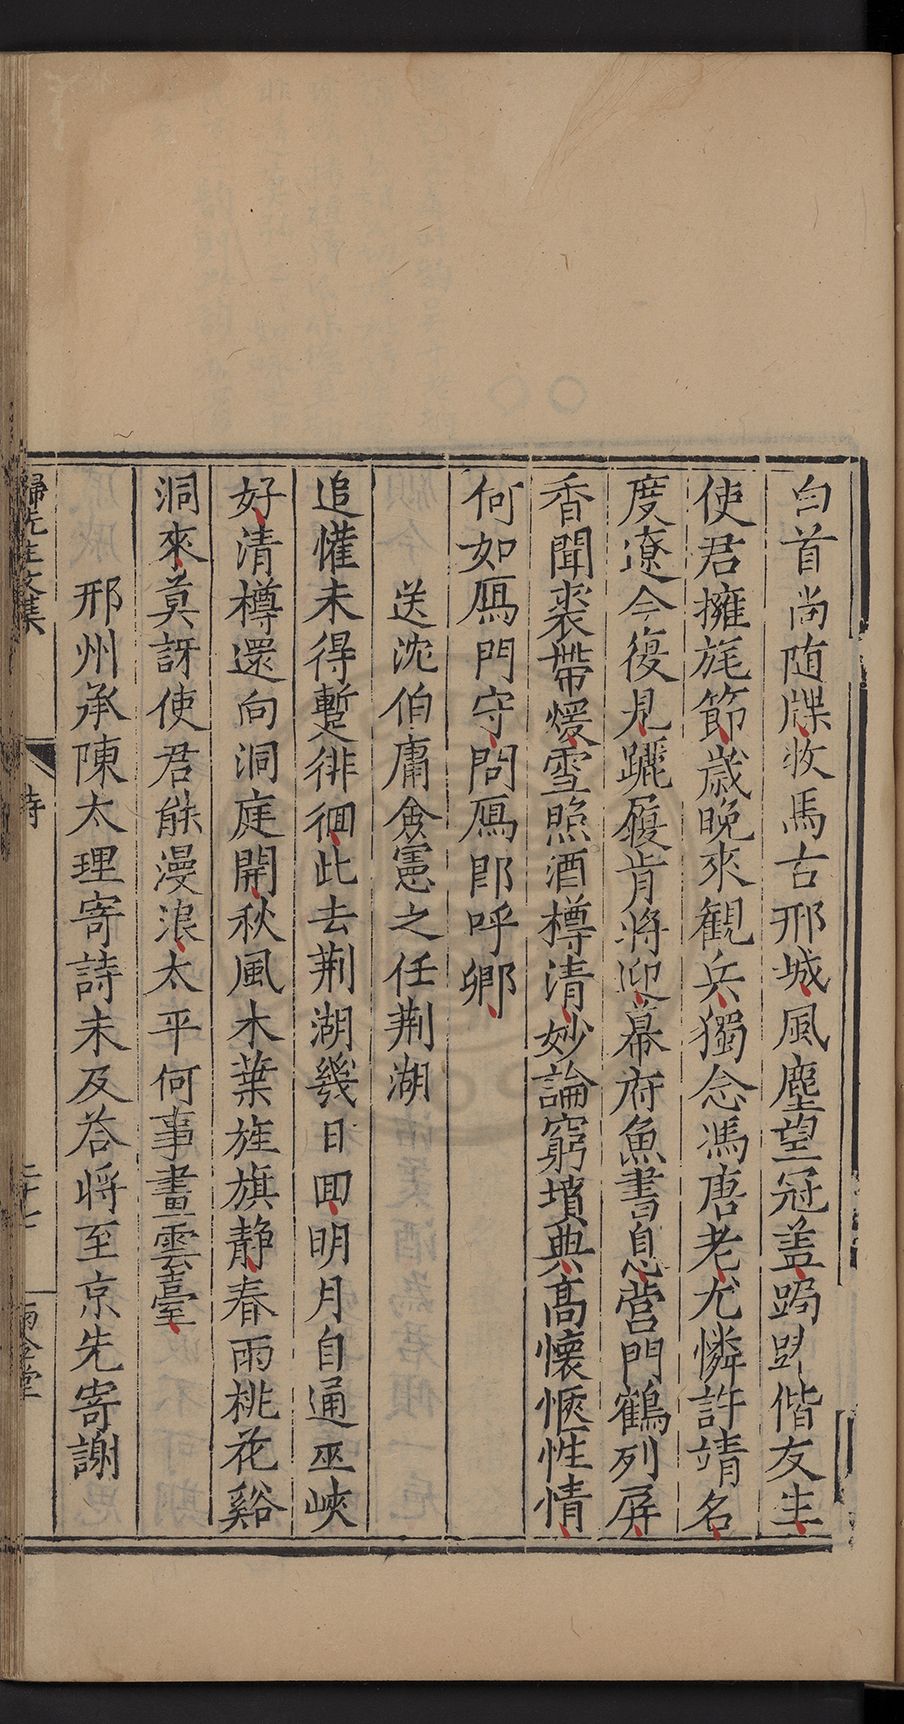 白首尚随牒牧馬古邢城風塵望冠盖跼𧿹偕友生
使君擁旄節歳晚來観兵獨念馮唐老尤憐許靖名
度遼今復見躧履肯將迎幕府魚書息营門鶴列屏
香聞裘帶煖雪照酒樽清妙論窮墳典高懷愜性情
何如鴈門守問鴈郎呼卿
送沈伯庸僉憲之任荆湖
追懽未得蹔徘徊此去荆湖幾日回明月自通巫峡
好清樽還向洞庭開秋風木葉旌旗静春雨桃花谿
洞來莫訝使君能漫浪太平何事畫雲臺
邢州承陳太理寄詩未及荅將至京先寄謝
歸先生文集
詩
二十七
雨金堂